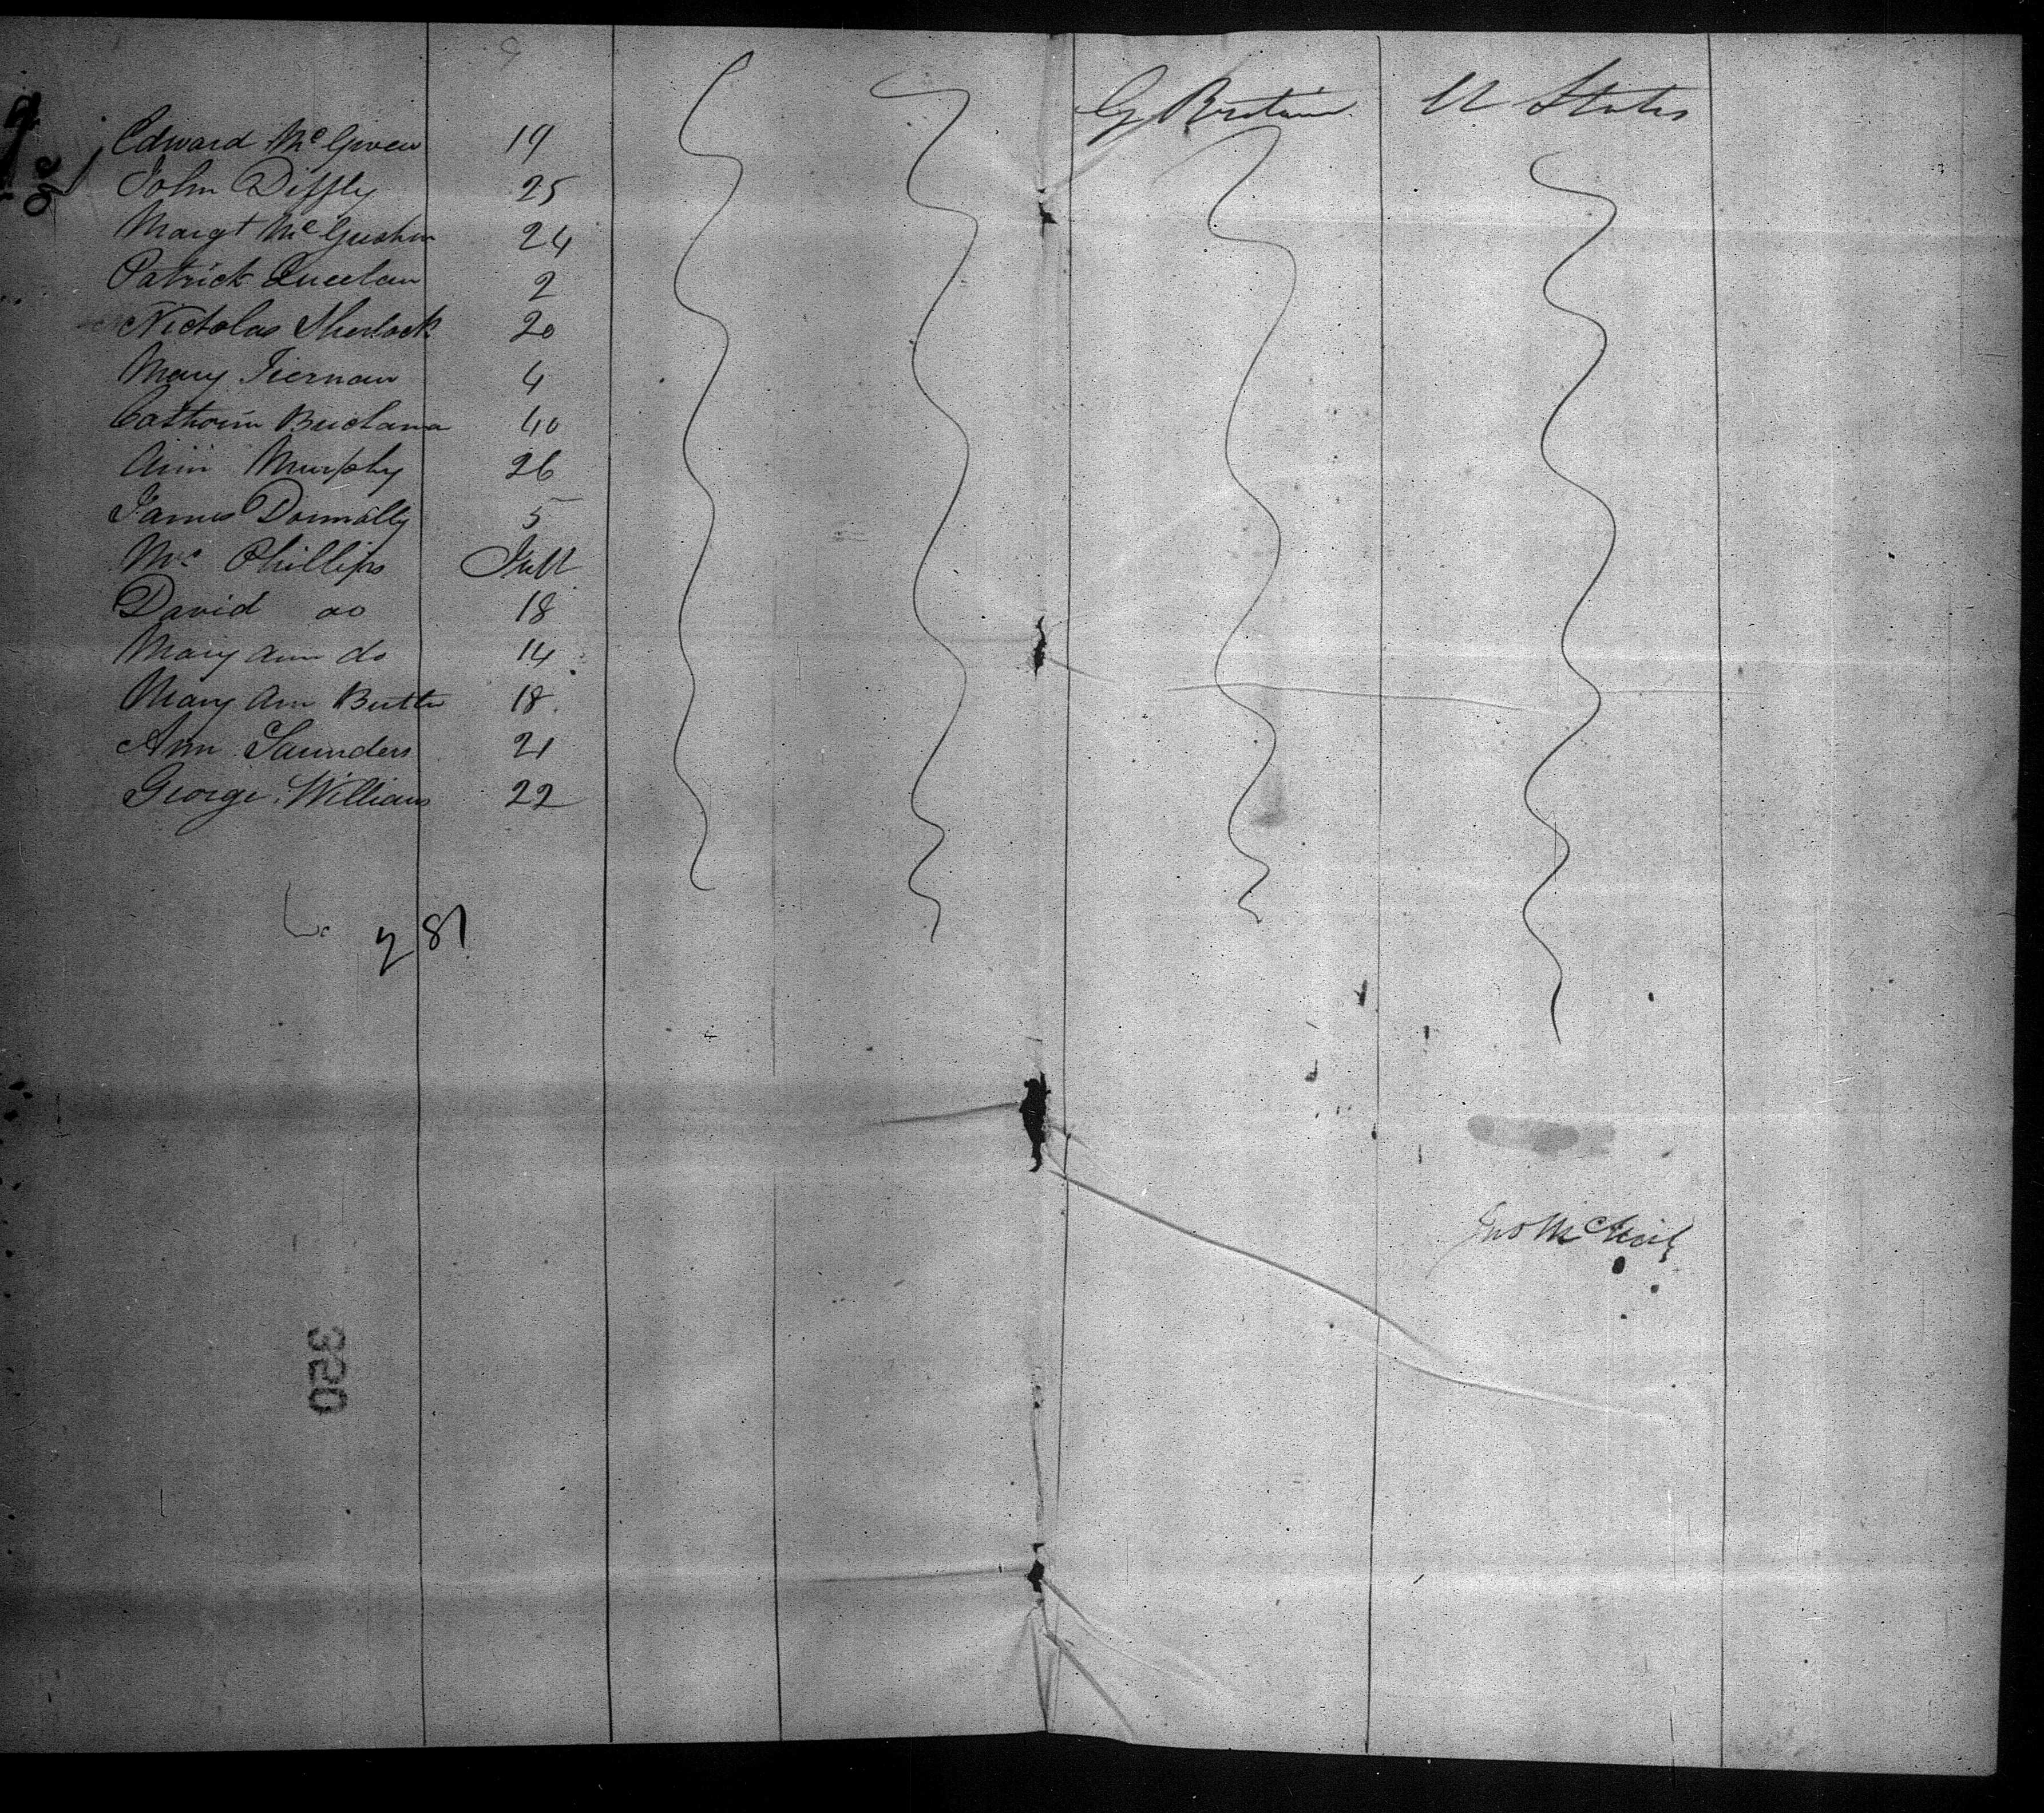 G Britain U States
Edward McGiven 19
John Diffly 25
Margt McGushin 24
Patrick 2
Nicholas Sherlock 20
Mary Tiernan 4
40
Ann Murphy 26
James Donnolly 5
Mrs Phillips
David do 18
Mary Ann do 14
Mary Ann Butler 18
Ann Saunders 21
George Williams 22
281
Jno McNeil
3520